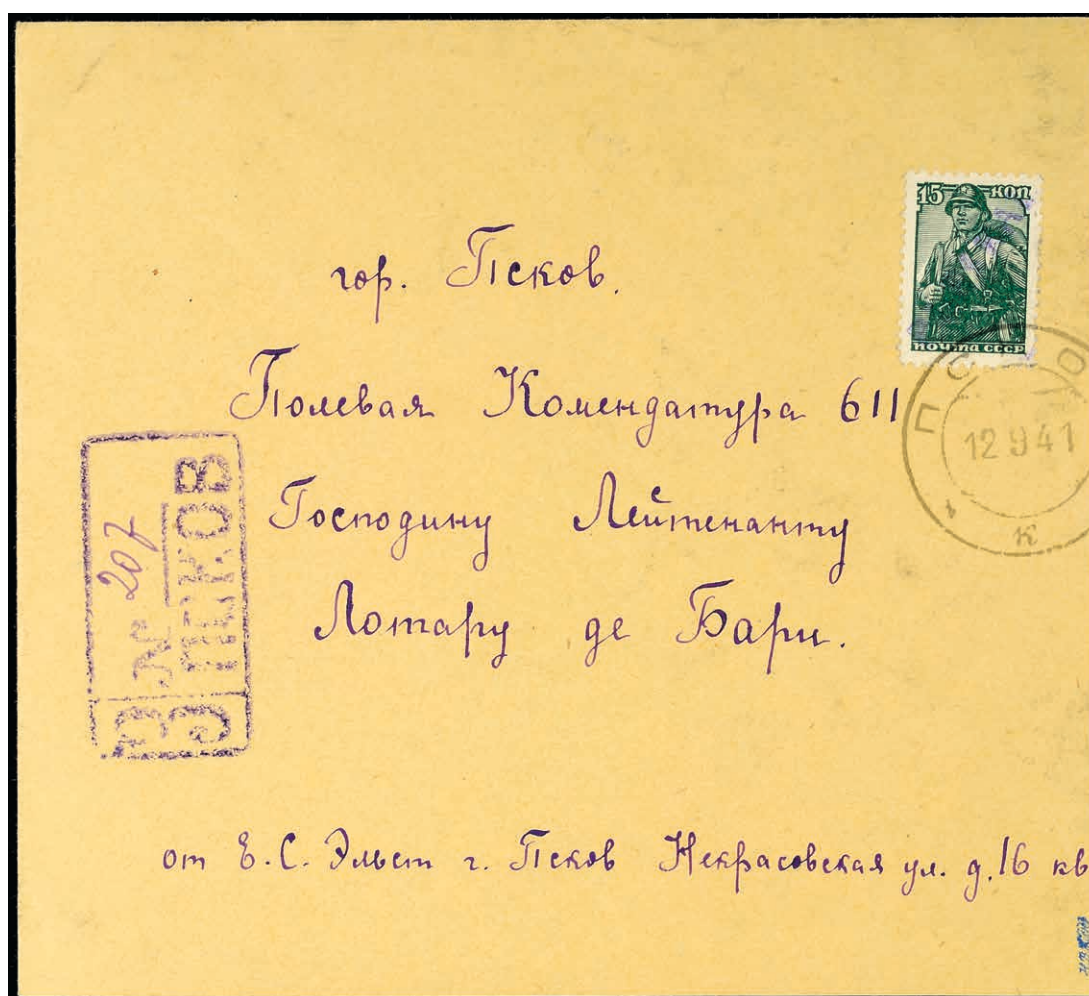 15 КОП
ПОЧТА СССР
гор. Псков.
Полевая Комендатура 611
12 9 41
к
Господину Лейтенанту
Лотару де Бари.
З № 207
ПСКОВ
от Е. С. Эльст г. Псков Некрасовская ул. д. 16 кв